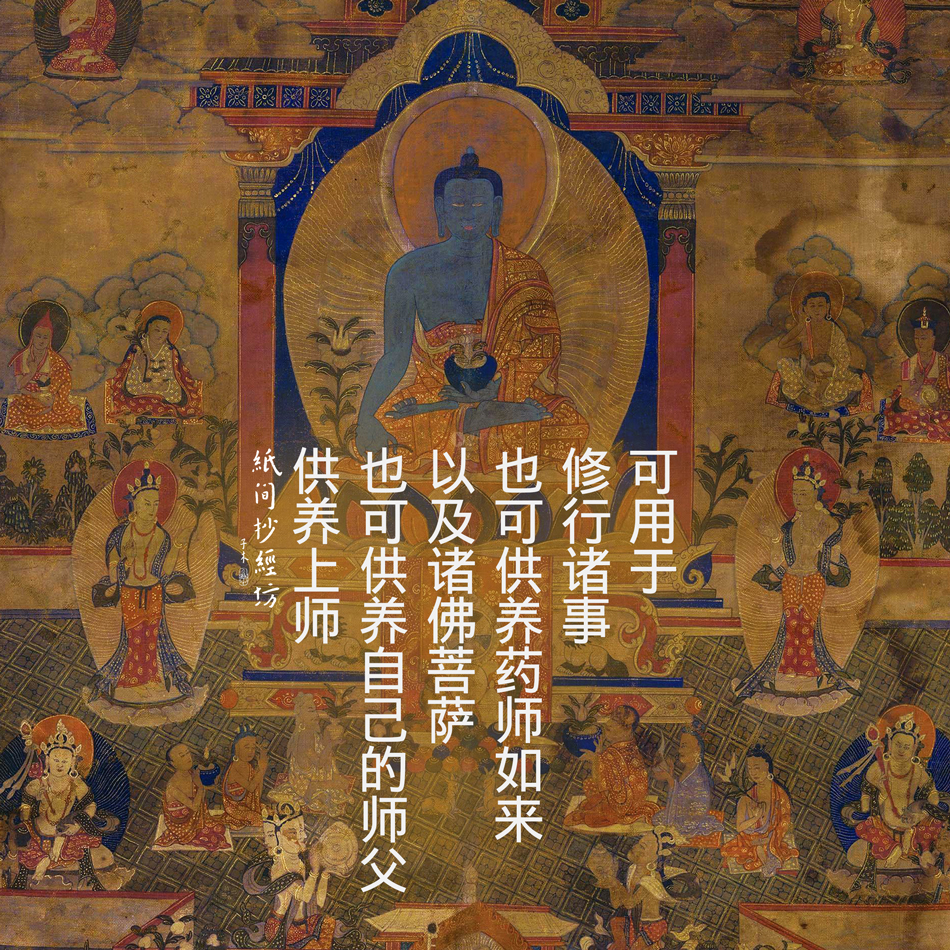 可用于
修行诸事
也可供养药师如来
以及诸佛菩萨
也可供养自己的师父
供养上师
紙间抄經坊